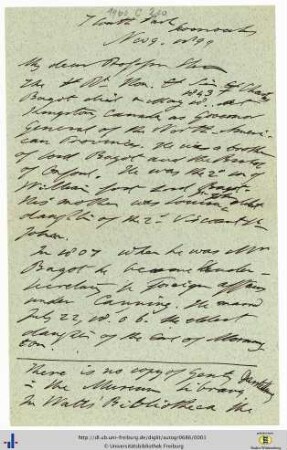 7 South Park
Nov 9. 1899
My dear Professor
The Rt Hon. Sir Charles
Bagot died in May 1843 at
Kingston Canada as Governor
General of the North Ameri-
can Provinces. He was a brother
of Lord Bagot and the Bishop
of Oxford. He was the 2nd son of
William first Lord Bagot.
His mother was Louisa eldest
daughter of the 2nd Viscount St
John.
In 1807 when he was Mr
Bagot he became Under-
Secretary for foreign affairs
under Canning. He married
July 22, 1806 the eldest
daughter of the Earl of Morning
ton.
There is no copy of
in the Museum library
In Watts Bibliotheca the
http://dl.ub.uni-freiburg.de/diglit/autogr0686/0003
© Universitätsbibliothek Freiburg